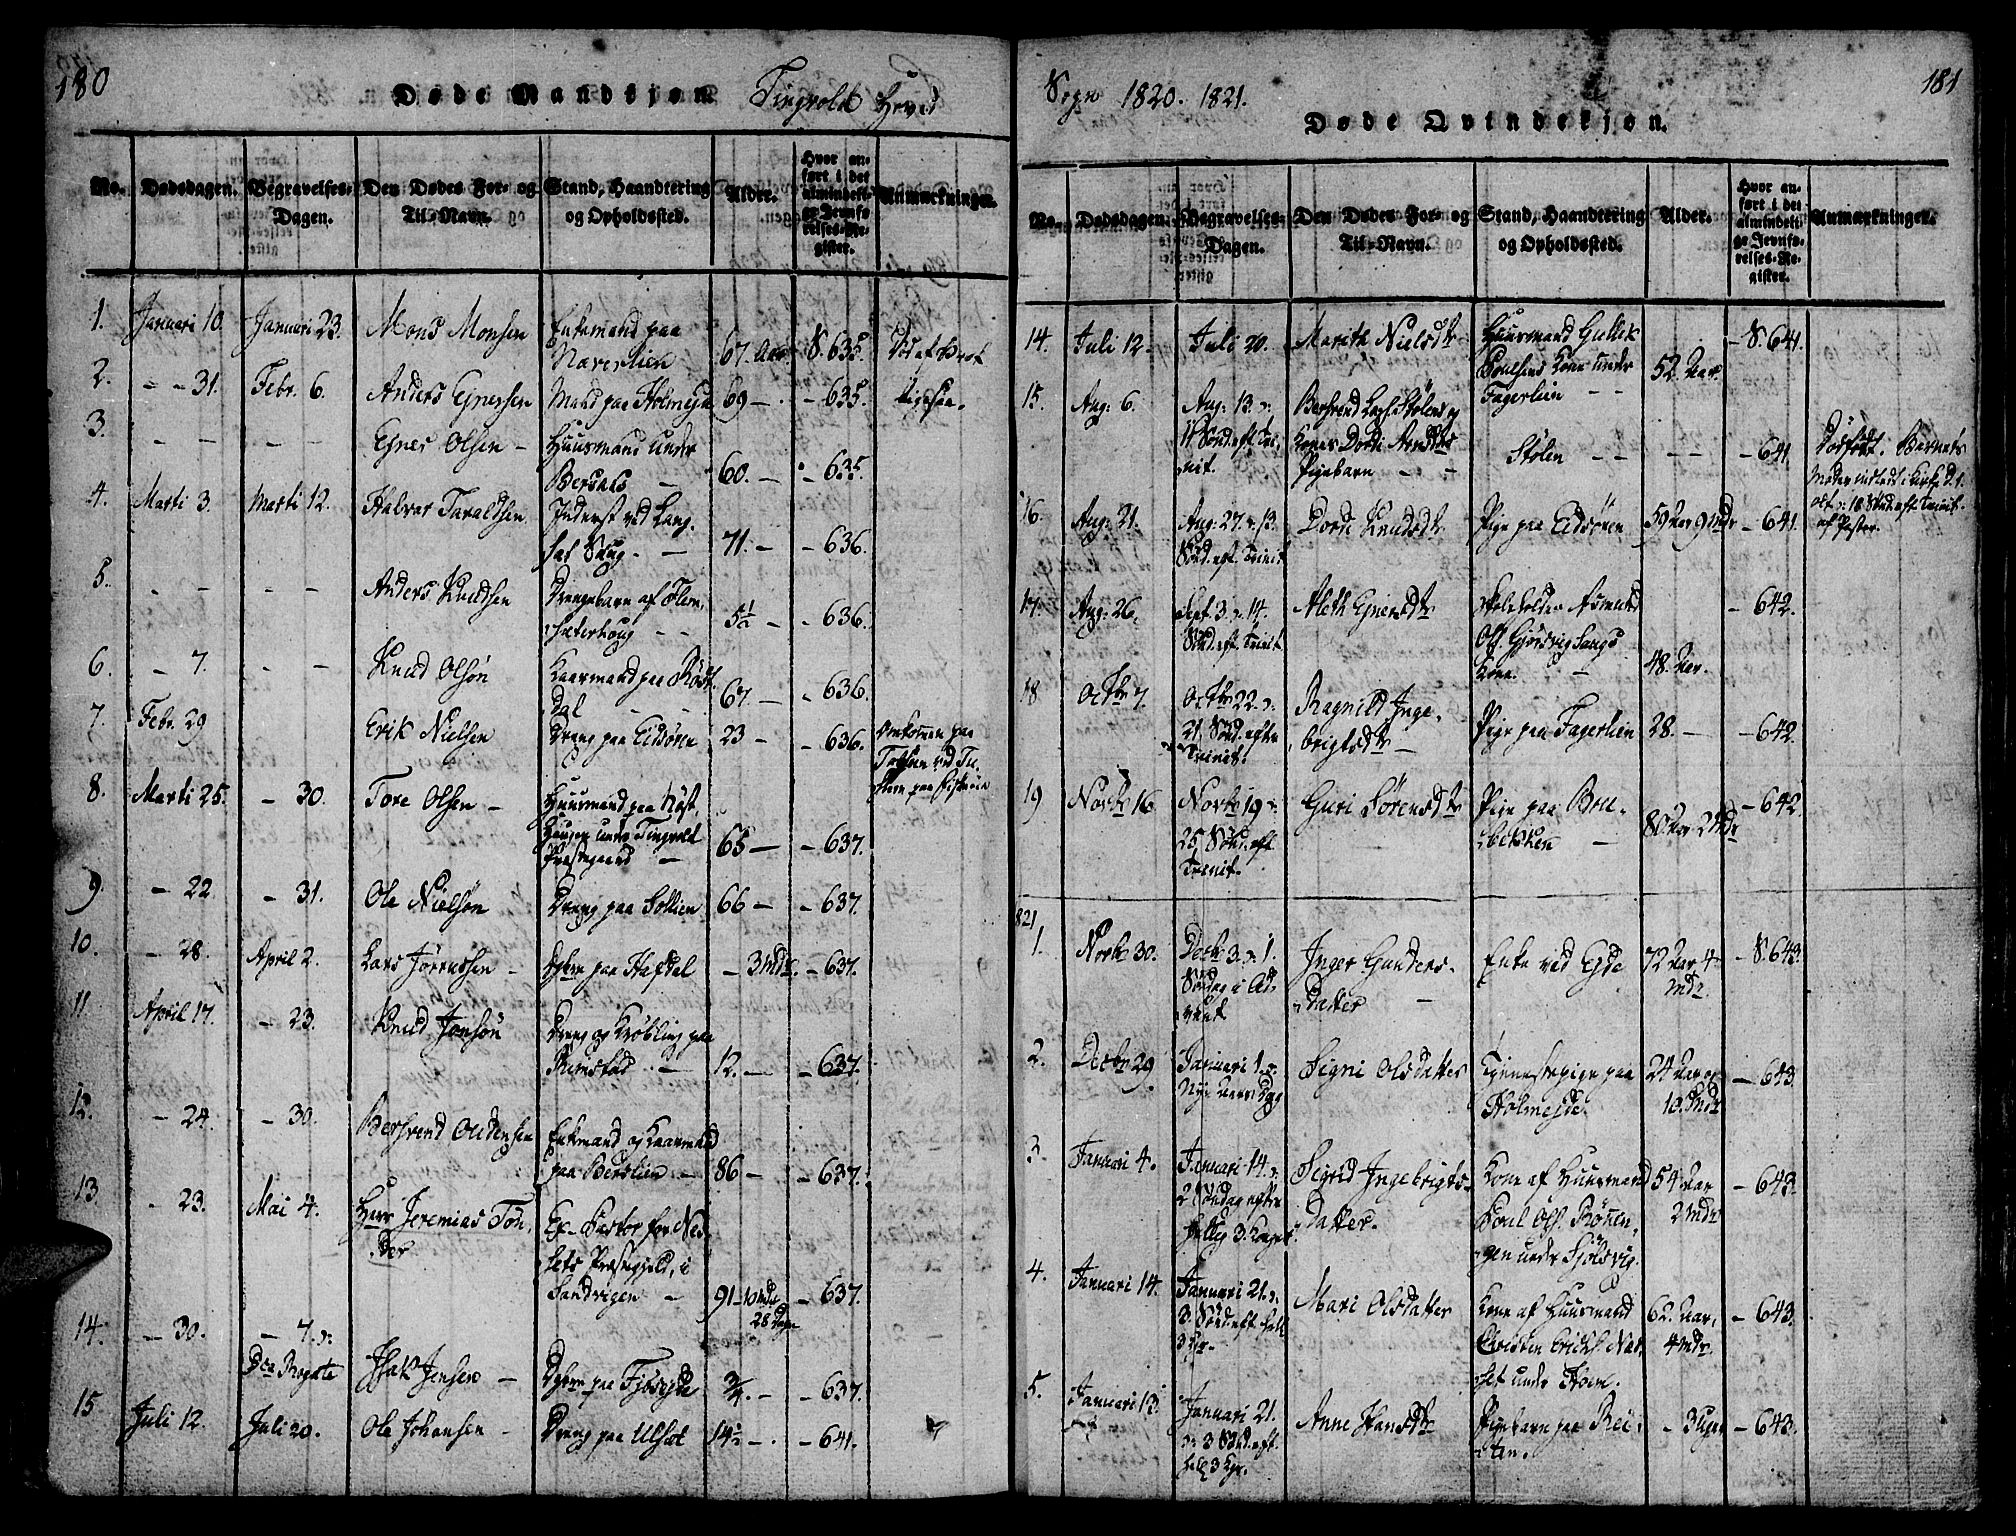 180
Døde Mandkjøn.
Tingvold Hoved
No.
Dødsdagen.
Begravelses-
Dagen.
Den Dødes For- og
Til-Navn.
Stand, Haandtering
og Opholdssted.
Alder.
Hvor an-
ført i det
almindeli-
ge Jevnfø-
relses-Re-
gister.
Anmærkninger.
1.
Januari 10.
Januari 23.
Mons Monsen
Enkemand paa
67. Aar
S. 635.
2.
- - 31.
Febr. 6.
Anders Ejnersen
Mand paa Holmejde
69 -
- 635.
3.
- - -
- -
Ejner Olsen -
Huusmand under
Bersaas -
60. -
- 635
4.
Marti 3.
Marti 12.
Halvor Taraldsen
Inderst ved Lang-
71. -
- 636.
5.
- -
- -
Anders Knudsen
Drengebarn af Flem-
sæterhoug - -
5½ -
- 636.
6.
- 7.
- -
Knud Olsøn
Kaarmand paa Röst-
Dal - -
67. -
- 636.
7.
Febr. 29
Erik Nielsen
Dreng paa Eidsören
23 -
- 636.
Omkommen paa
8.
Marti 25.
- 30.
Tore Olsen -
Huusmand paa Röst-
Haugen under Tingvold
Præstegaard -
65 -
- 637.
9.
- 22.
- 31.
Ole Nielsøn
Dreng paa Sollien
66 -
- 637.
10.
- 28.
April 2.
Lars Jørensen -
paa Hafdal
- 3 Mdr.
- 637.
11
April 17.
- 23.
Knud Jonsøn
Dreng og Krøbling paa
Rimstad. -
12. -
- 637.
12.
- 24.
- 30.
Bersvend Oudensen
Enkemand og Kaarmand
paa Berslien -
86 -
- 637.
13.
- 23.
Mai 4.
Herr Jeremias Ton-
der
Ex-Pastor for Nes-
sets Præstegjeld, i
Sandvigen -
91 - 10 Mdr
28 Dage
- 637.
14.
- 30.
- 7. ɔ:
Dca Rogate
Isak Jensen -
paa Fjöseide
¾. -
- 637.
15
Juli 12.
Juli 20.
Ole Johansen -
Dreng paa Ulset
14½ -
- 641.
Sogn 1820. 1821.
181
Døde Qvindekjøn.
No.
Dødsdagen.
Begravelses-
Dagen.
Den Dødes For- og
Til-Navn.
Stand, Haandtering
og Opholdssted.
Alder.
Hvor an-
ført i det
almindeli-
ge Jevnfø-
relses-Re-
gister.
Anmærkninger.
14.
Juli 12.
Juli 20.
Marith Nielsdtr
Huusmand Gullik
Poulsens Kone under
Fagerlien - -
52 Aar.
- S. 641.
15.
Aug: 6.
Aug: 13. ɔ:
11 Sönd. eft. Tri-
nit.
Bersvend Stölen og
Kones Dordi Arndtdtr
Pigebarn - -
Stölen - -
- -
- 641.
Dødfødt. Barnets
Moder indledt i Kirke d. 1.
Oct. ɔ: 18 Sönd. eft. Trinit.
af Pastor.
16.
Aug: 21.
Aug: 27. ɔ: 13.
Sönd. eft. Trinit
Dordi Knudsdtr
Pige paa Eidsören
59 Aar 9 Mdr
- 641.
17
Aug: 26.
Sept. 3. ɔ: 14.
Sönd. eft. Trinit
Aleth Ejnersdtr
Skoleholder Asmund
Ols. Gjörsvig
Kone. -
48. Aar.
- 642.
18
Octbr 7.
Octbr 22. ɔ:
21. Sönd. efter
Trinit.
Ragnild Inge-
brigtsdtr -
Pige paa Fagerlien
28. -
- 642.
19
Novbr 16
Novbr 19 ɔ:
25. Sönd. eft
Trinit.
Guri Sörensdtr
Pige paa Bru-
bekken -
80 Aar 2 Mdr
- 642.
821
1.
Novbr 30.
Decbr 3. ɔ: 1.
Söndag i Ad-
vent
Inger Gunders-
Datter -
Enke ved Ejde
72 Aar 4
Mdr.
- S. 643.
2.
Decbr 29.
Januari 1. ɔ:
Nyt Aars Dag
Signi Olsdatter
Tjenestepige paa
Holmejde.
24 Aar og
10 Mdr
- 643.
3.
Januari 4.
Januari 14. ɔ:
2 Söndag efter
Hellig 3 Konger
Sigrid Ingebrigts-
Datter.
Kone af Huusmand
Poul Ols. Rönnin-
gen under Sjölsvig.
54 Aar
2 Mdr
- 643.
4.
Januari 14.
Januari 21. ɔ:
3. Sönd. eft. Hell.
3 Kgr.
Mari Olsdatter
Kone af Huusmand
Christen Erichs. Næs-
set under Hoem.
62. Aar,
4 Mdr.
- 643.
5.
Januari 13.
Januari 21.
ɔ: 3 Sönd. eft.
Hell. 3 Kgr.
Anne Hansdtr
Pigebarn paa Rei-
ten.
- 3 Uger
- 643.